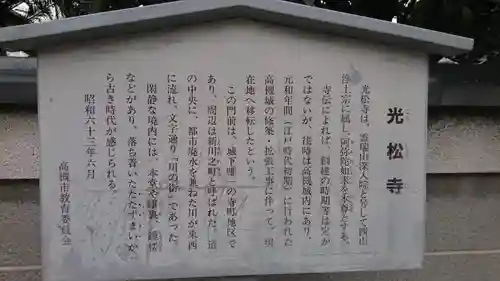 光松寺
光松寺は、霊瑞山深入院と号して西山
浄土宗に属し、阿弥陀如来を本尊とする。
寺伝によれば、創建の時期等は定か
ではないが、往時は高槻城内にあり、
元和年間(江戸時代初期)に行われた
高槻城の修築・拡張工事に伴って、現
在地へ移転したという。
この門前は、城下唯一の寺町地区で
あり、周辺は新川之町と呼ばれた。道
の中央に、都市廃水を兼ねた川が東西
に流れ、文字通り「川の街」であった。
閑静な境内には、本堂・庫裏・鐘楼
などがあり、落ち着いたたたずまいか
ら古き時代が感じられる。
昭和六十三年六月
高槻市教育委員会